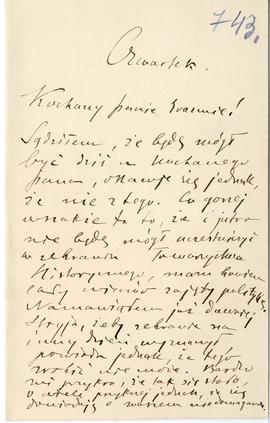 743.
Czwartek.
Kochany panie Erazmie!
Sądziłem, że będę mógł
być dziś u kochanego
pana, okazuje się jednak,
że nic z tego. Co gorej
wszakże to to, że i jutro
nie będę mógł uczestniczyć
w zebraniu Towarzystwa
Historycznego, mam bowiem
cały wieczór zajęty
Namawiałem już dawniej
Stryja, żeby zebranie na
inny dzień wyznaczył
powiada jednak, że tego
zrobić nie może. Bardzo
mi przykro, że tak się stało,
o wiele przykrzej jednak, że się
dowiaduję o waszem niedomaganiu.